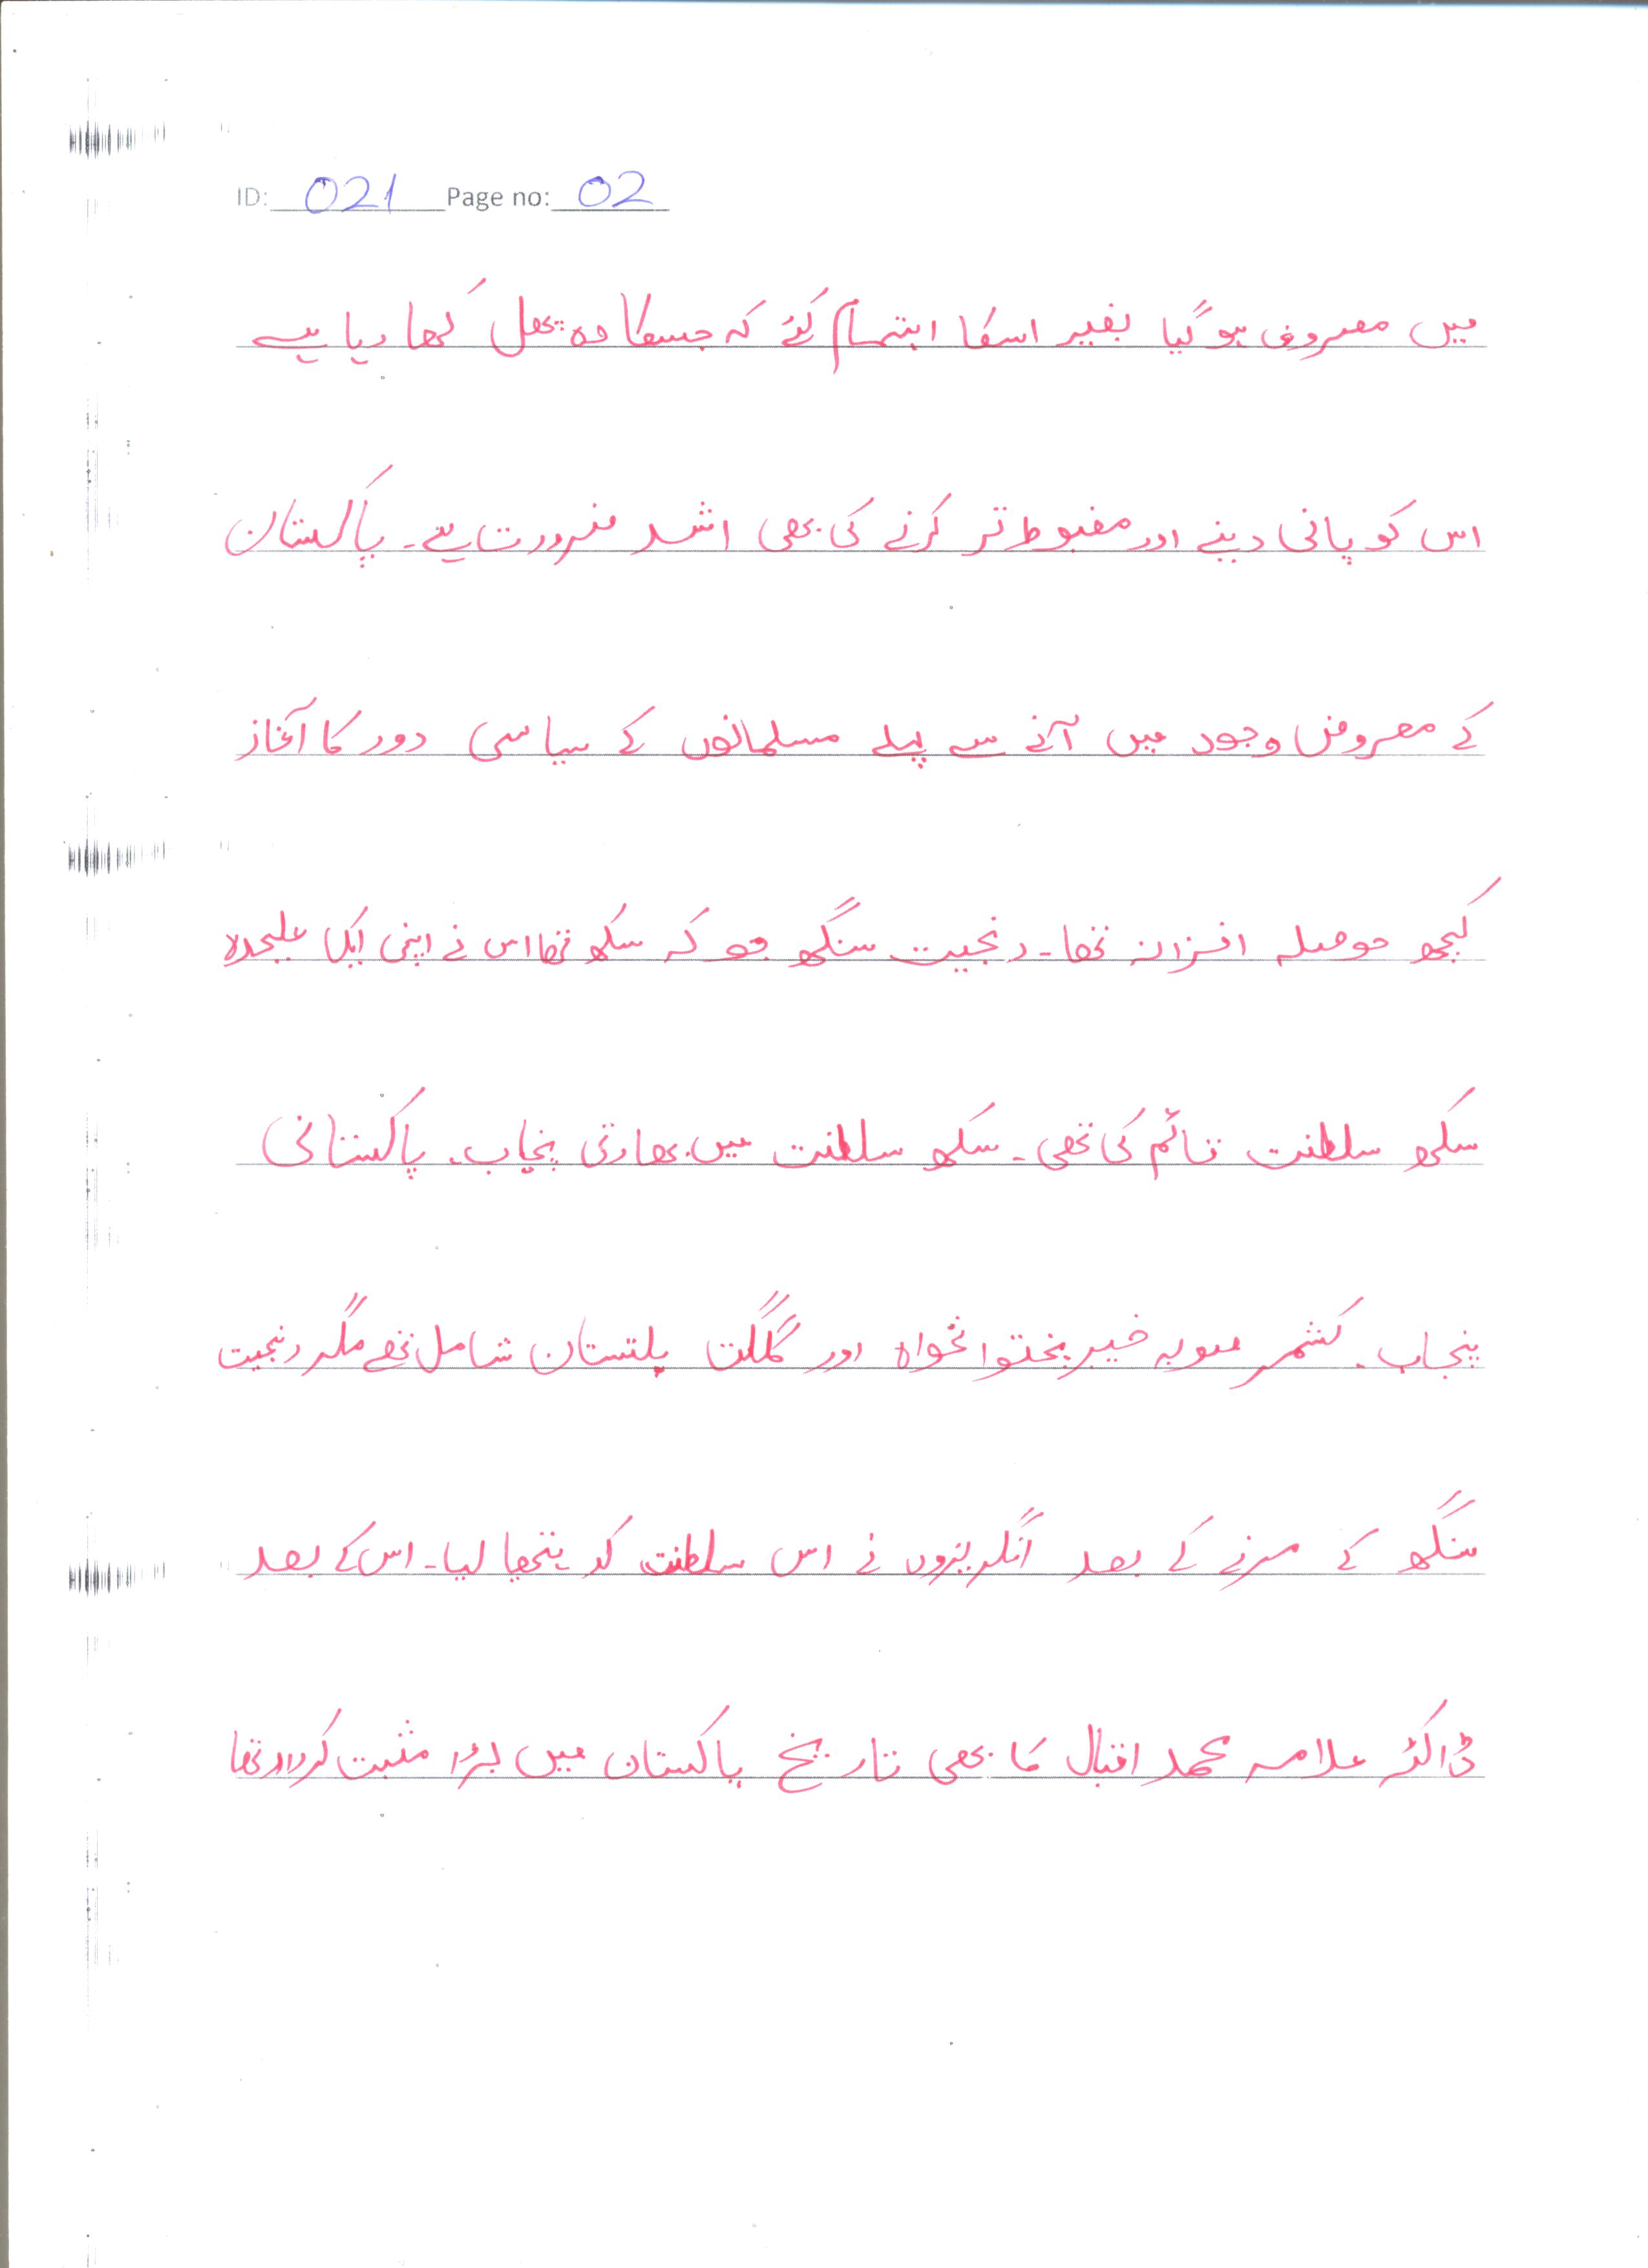 ID: 021 Page no: 02
میں مصروف ہوگیا بغیر اسکا اہتمام کئے کہ جسکا وہ پھل کھا رہا ہے
اس کو پانی دینے اور مضبوط تر کرنے کی بھی اشد ضرورت ہے۔ پاکستان
کے معروض وجود میں آنے سے پہلے مسلمانوں کے سیاسی دور کا آغاز
کچھ حوصلہ افزا نہ تھا۔ رنجیت سنگھ جو کہ سکھ تھا اس نے اپنی ایک علیحدہ
سکھ سلطنت قائم کی تھی۔ سکھ سلطنت میں بھارتی پنجاب۔ پاکستانی
پنجاب۔ کشمر صوبہ خیبر پختوانخواہ اور گلگت بلتستان شامل تھے مگر رنجیت
سنگھ کے مرنے کے بعد انگریزوں نے اس سلطنت کو ہتھیا لیا۔ اس کے بعد
ڈاکٹر علامہ محمد اقبال کا بھی تاریخ پاکستان میں بڑا مثبت کردار تھا